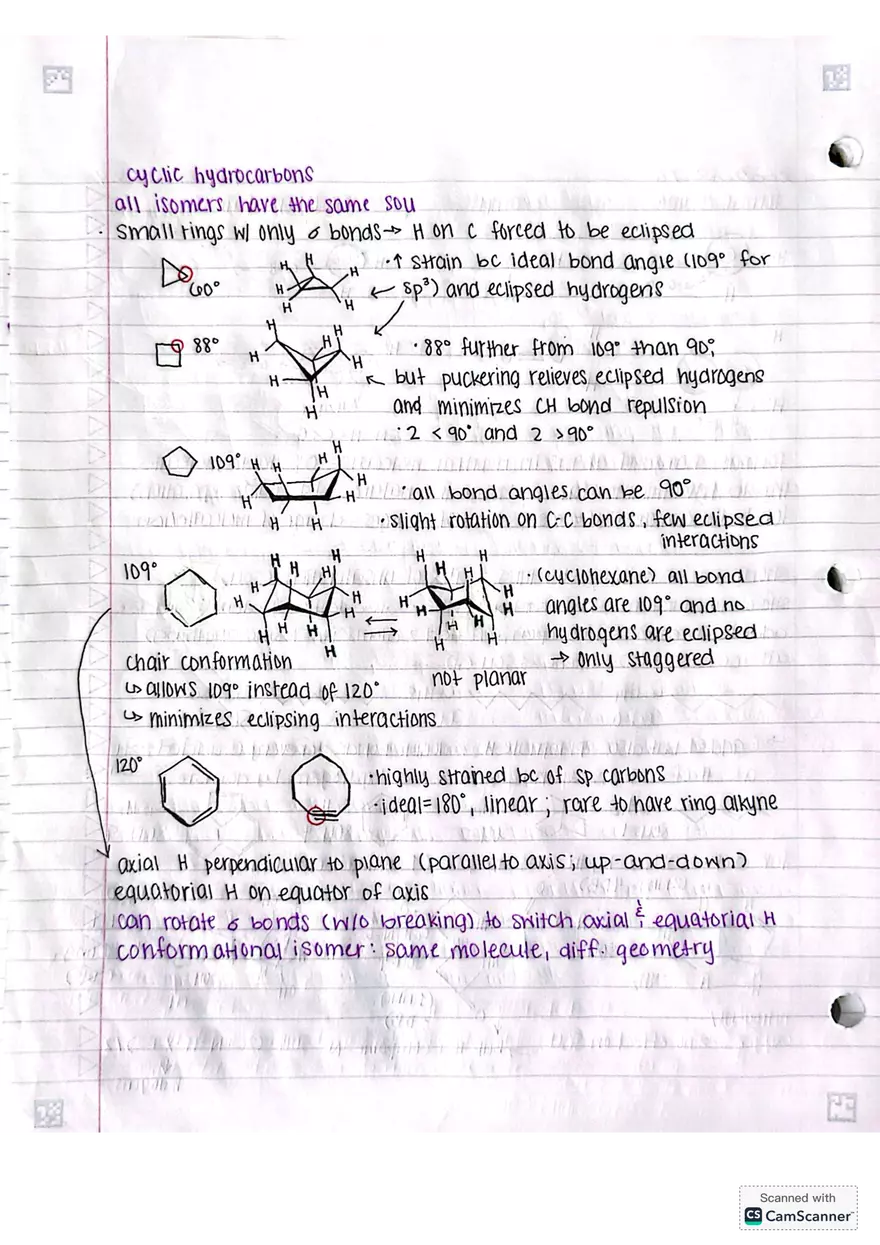 cyclic hydrocarbons
all isomers have the same SOU
· small rings w/ only σ bonds → H on C forced to be eclipsed
60°
H H H H H H
·↑ strain bc ideal bond angle (109° for
← sp³) and eclipsed hydrogens
88°
H H H H H H H H
· 88° further from 109° than 90°,
but puckering relieves eclipsed hydrogens
and minimizes CH bond repulsion
· 2 < 90° and 2 > 90°
109°
H H H H H H H H H
· all bond angles can be 90°
· slight rotation on C-C bonds, few eclipsed
interactions
109°
H H H H H H H H H H H H
H H H H H H H H H H
· (cyclohexane) all bond
angles are 109° and no
hydrogens are eclipsed
→ only staggered
chair conformation
not planar
↳ allows 109° instead of 120°
↳ minimizes eclipsing interactions
120°
· highly strained bc of sp carbons
· ideal = 180°, linear ; rare to have ring alkyne
axial H perpendicular to plane (parallel to axis; up-and-down)
equatorial H on equator of axis
can rotate σ bonds (w/o breaking) to switch axial & equatorial H
conformational isomer: same molecule, diff. geometry
Scanned with
CS CamScanner